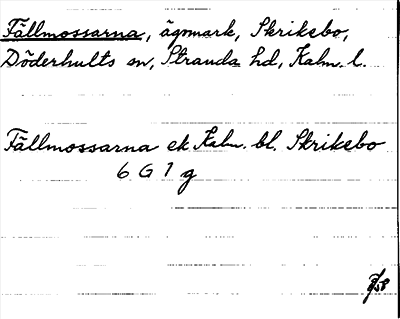 Fällmossarna, ägomark, Skriksbo,
Döderhults sn, Stranda hd, Kalm. l.
Fällmossarna ek Kalm. bl. Skriksbo
6 G 1 g